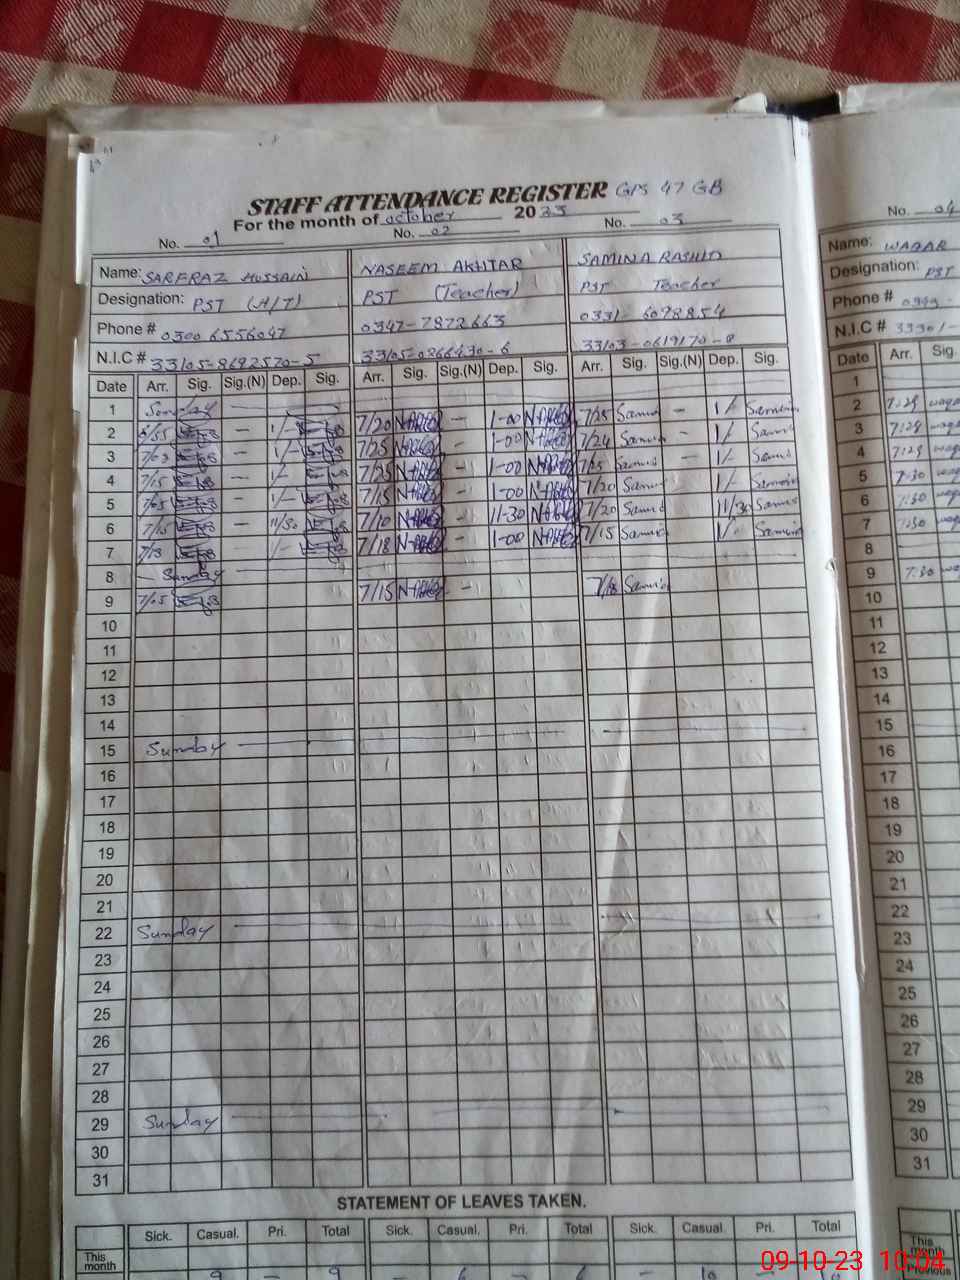 STAFF ATTENDANCE REGISTER GPS 47 GB
For the month of october 2023
No. 01 No. 02 No. 03
Name: SARFRAZ HUSSAIN NASEEM AKHTAR SAMINA RASHID
Designation: PST (H/T) PST (Teacher) PST Teacher
Phone # 0300 6556047 0347-7872663 0331-6098854
N.I.C # 33105-8692570-5 33105-0266430-6 33103-0619170-8
Date Arr. Sig. Sig.(N) Dep. Sig. Arr. Sig. Sig.(N) Dep. Sig. Arr. Sig. Sig.(N) Dep. Sig.
1 Sunday
2 7/20 - 1-00 7/25 - 1/-
3 - 1/- 7/25 - 1-00 7/24 - 1/-
4 7/15 - 1/- 7/25 - 1-00 7/25 - 1/-
5 7/05 - 1/- 7/15 - 1-00 7/20 1/-
6 7/15 - 11/30 7/10 - 11-30 7/20 11/30
7 7/18 1/- 7/18 - 1-00 7/15 1/-
8 Sunday
9 7/05 7/15 - 7/18
10
11
12
13
14
15 Sunday
16
17
18
19
20
21
22 Sunday
23
24
25
26
27
28
29 Sunday
30
31
STATEMENT OF LEAVES TAKEN.
Sick. Casual. Pri. Total Sick. Casual. Pri. Total Sick. Casual Pri. Total
This month
9 - 9 - 6 - 6 - 10 - 10
No. 04
Name: WAQAR
Designation: PST
Phone # 0349-
N.I.C # 33301-
Date Arr. Sig.
1
2 7:29
3 7:29
4 7:29
5 7:30
6 7:30
7 7:30
8
9 7:30
10
11
12
13
14
15
16
17
18
19
20
21
22
23
24
25
26
27
28
29
30
31
This month
Previous
09-10-23 10:04